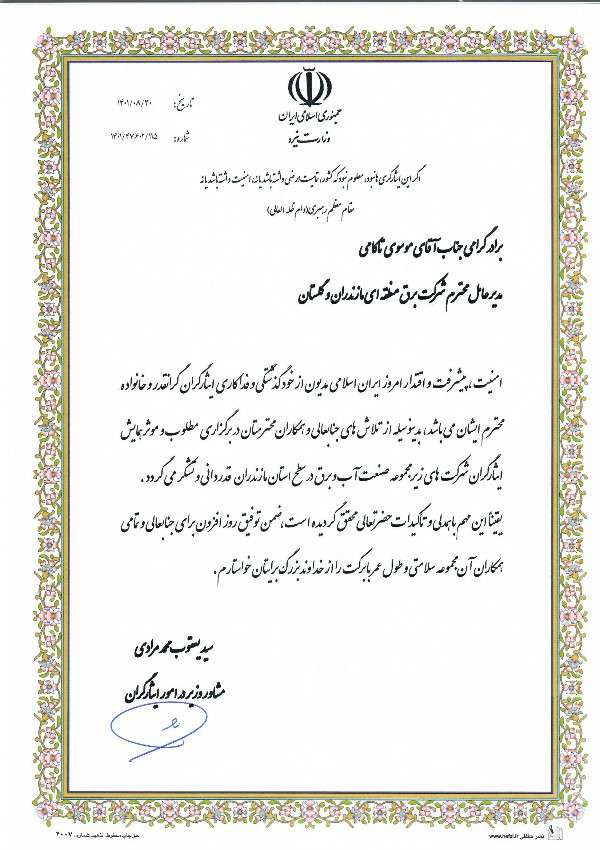 جمهوری اسلامی ایران
وزارت نیرو
تاریخ: ۱۴۰۱/۰۸/۳۰
شماره: ۱۴۰۱/۴۷۶۰۲/۱۱۵
اگر این ایثارگری ها نبود، معلوم نبود که کشور، تمامیت ارضی داشته باشد یا نه، امنیت داشته باشد یا نه
مقام معظم رهبری(دام ظله العالی)
برادر گرامی جناب آقای موسوی تاکامی
مدیرعامل محترم شرکت برق منطقه ای مازندران و گلستان
امنیت، پیشرفت و اقتدار امروز ایران اسلامی مدیون از خودگذشتگی و فداکاری ایثارگران گرانقدر و خانواده
محترم ایشان می باشد، بدینوسیله از تلاش های جنابعالی و همکاران محترمتان در برگزاری مطلوب و موثر همایش
ایثارگران شرکت های زیرمجموعه صنعت آب و برق در سطح استان مازندران قدردانی و تشکر می گردد.
یقیناً این مهم با همدلی و تاکیدات حضرتعالی محقق گردیده است، ضمن توفیق روز افزون برای جنابعالی و تمامی
همکاران آن مجموعه سلامتی و طول عمر با برکت را از خداوند بزرگ برایتان خواستارم.
سید یعقوب محمدمرادی
مشاور وزیر در امور ایثارگران
حق چاپ محفوظ. تذهیب شماره: ۴۰۰۷
نشر حفظی www.hefzi.ir